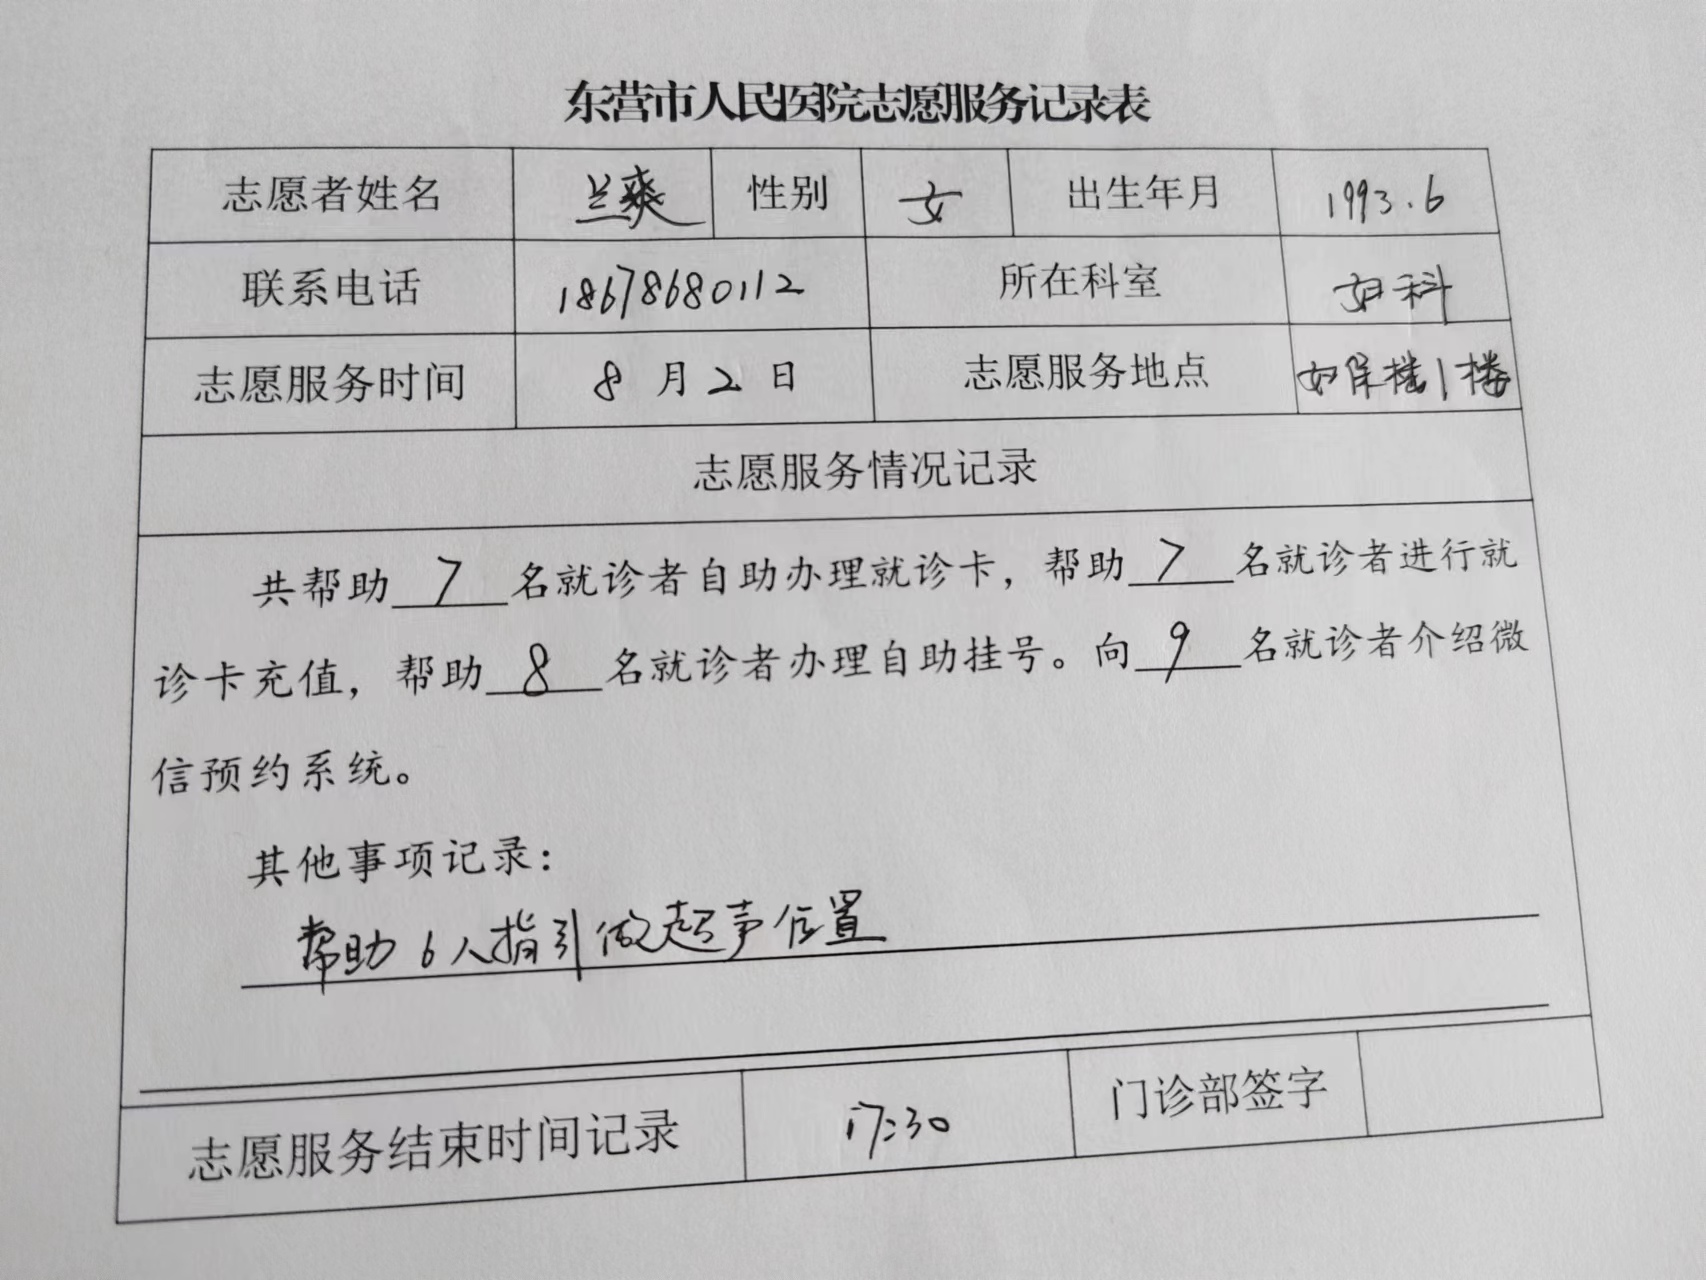 东营市人民医院志愿服务记录表
志愿者姓名 兰爽 性别 女 出生年月 1993.6
联系电话 18678680112 所在科室 妇科
志愿服务时间 8月2日 志愿服务地点 妇保楼1楼
志愿服务情况记录
共帮助7名就诊者自助办理就诊卡，帮助7名就诊者进行就
诊卡充值，帮助8名就诊者办理自助挂号。向9名就诊者介绍微
信预约系统。
其他事项记录：
帮助6人指引做超声位置
志愿服务结束时间记录 17:30 门诊部签字